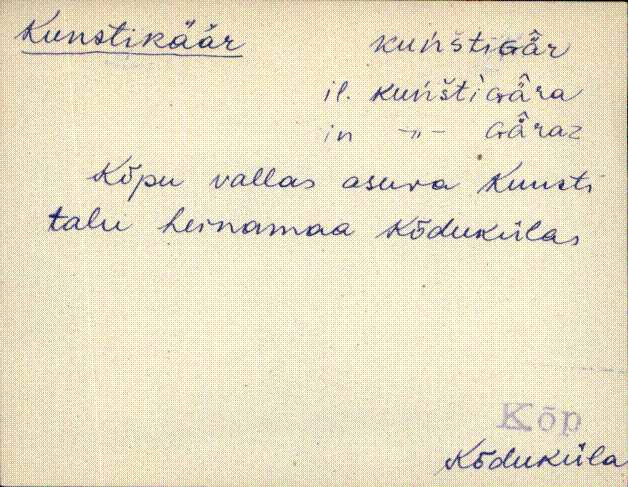 Kunstikäär kuńštiɢä̂r
il. kuńštìɢä̂ra
in -„- ɢä̂raz
Kõpu vallas asuva Kunsti
talu heinamaa Kõdukülas
Kõp
Kõduküla